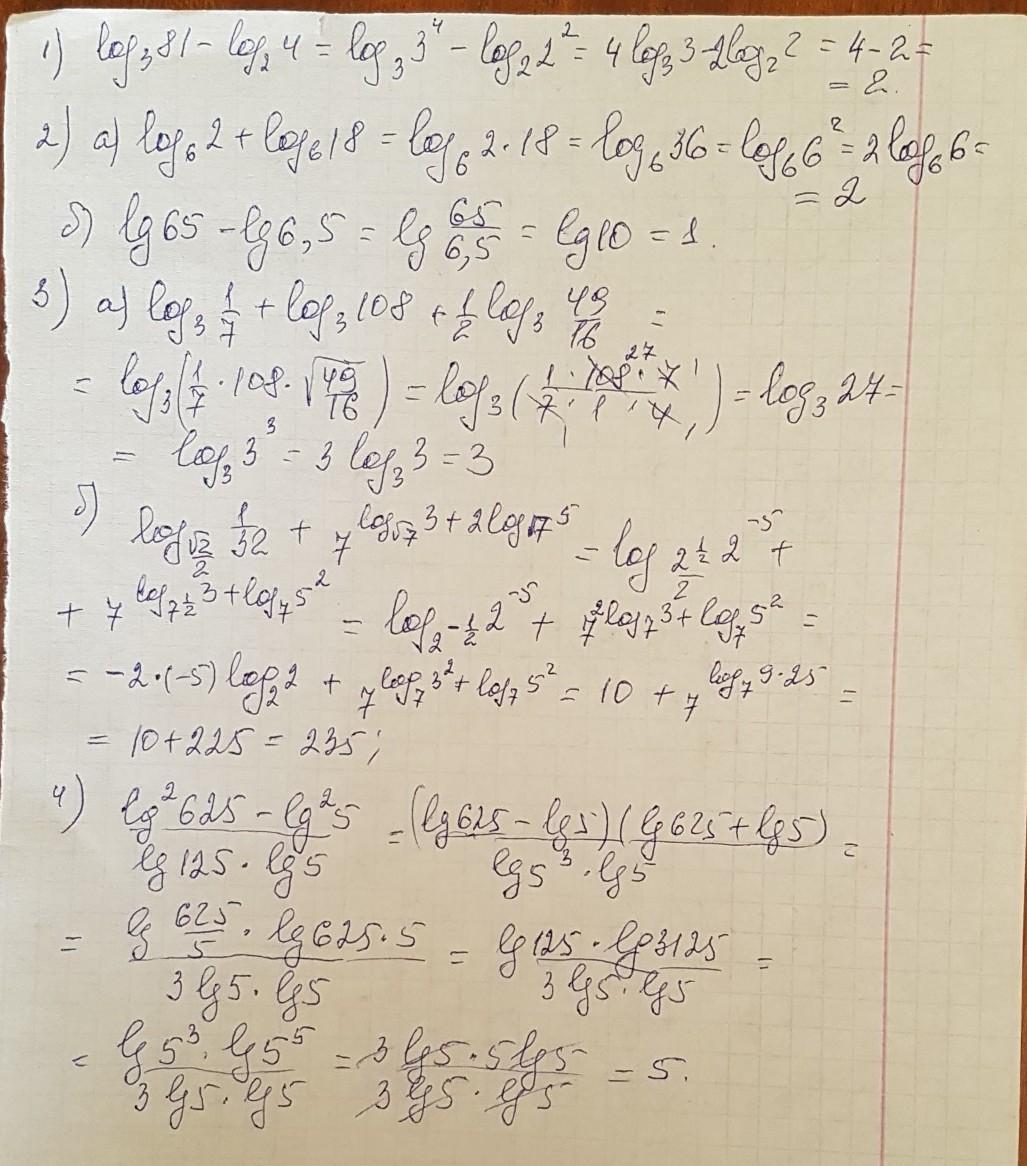 1) log₃81 - log₂4 = log₃3⁴ - log₂2² = 4log₃3 - 2log₂2 = 4 - 2 =
= 2.
2) а) log₆2 + log₆18 = log₆2·18 = log₆36 = log₆6² = 2log₆6 =
= 2
б) lg65 - lg6,5 = lg 65/6,5 = lg10 = 1.
3) а) log₃ 1/7 + log₃108 + 1/2 log₃ 49/16 =
= log₃(1/7 · 108 · √(49/16)) = log₃(1·108·7 / 7·1·4) 27 1 1 1 = log₃27 =
= log₃3³ = 3log₃3 = 3
б) log_(√2/2) 1/32 + 7^(log_√7 3 + 2log₇5) = log_(2^(1/2)/2) 2⁻⁵ +
+ 7^(log_(7^(1/2)) 3 + log₇5²) = log_(2^(-1/2)) 2⁻⁵ + 7^(2log₇3 + log₇5²) =
= -2·(-5)log₂2 + 7^(log₇3² + log₇5²) = 10 + 7^(log₇9·25) =
= 10 + 225 = 235;
4) (lg²625 - lg²5)/(lg125 · lg5) = (lg625 - lg5)(lg625 + lg5)/(lg5³ · lg5) =
= (lg 625/5 · lg625·5)/(3lg5 · lg5) = (lg125 · lg3125)/(3lg5 · lg5) =
= (lg5³ · lg5⁵)/(3lg5 · lg5) = (3lg5 · 5lg5)/(3lg5 · lg5) = 5.